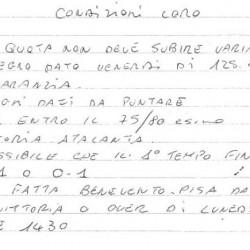 CONDIZIONI LORO
QUOTA NON DEVE SUBIRE VARI
EGNO DATO VENERDI DI 125.
ARANZIA.
DATI DA PUNTARE
ENTRO IL 75/80 ESIMO
TORIA ATALANTA
SSIBILE CHE IL 1° TEMPO FIN
1 0 0-1
FATTA BENEVENTO-PISA DA
VITTORIA O OVER DI LUNED
E 1430